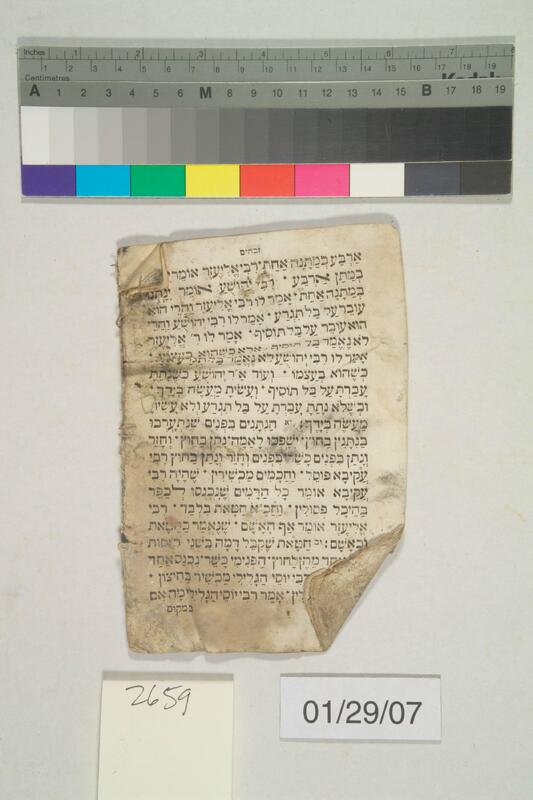 Inches 1 2 3 4 5 6 7 8
Centimetres 1 2 3 4 5 6 7 8 9 10 11 12 13 14 15 16 17 18 19
Kodak
A 1 2 3 4 5 6 M 8 9 10 11 12 13 14 15 B 17 18 19
זבחים
אַרְבַּע בְּמַתָּנָה אַחַת· רַבִּי אֱלִיעֶזֶר אוֹמֵר
בְּמַתַּן אַרְבַּע · רַבִּי יְהוֹשֻׁעַ אוֹמֵר יִנָּתְנוּ
בְּמַתָּנָה אַחַת· אָמַר לוֹ רַבִּי אֱלִיעֶזֶר וַהֲרֵי הוּא
עוֹבֵר עַל בַּל תִּגְרַע· אָמַר לוֹ רַבִּי יְהוֹשֻׁעַ וַהֲרֵי
הוּא עוֹבֵר עַל בַּל תּוֹסִיף· אָמַר לוֹ ר׳ אֱלִיעֶזֶר
לֹא נֶאֱמַר בַּל תּוֹסִיף אֶלָּא כְּשֶׁהוּא בְּעַצְמוֹ·
אָמַר לוֹ רַבִּי יְהוֹשֻׁעַ לֹא נֶאֱמַר בַּל תִּגְרַע
כְּשֶׁהוּא בְּעַצְמוֹ · וְעוֹד א״ר יְהוֹשֻׁעַ כְּשֶׁנָּתַתָּ
עָבַרְתָּ עַל בַּל תּוֹסִיף· וְעָשִׂיתָ מַעֲשֶׂה בְּיָדֶךָ·
וּכְשֶׁלֹּא נָתַתָּ עָבַרְתָּ עַל בַּל תִּגְרַע וְלֹא עָשִׂיתָ
מַעֲשֶׂה בְּיָדֶךָ: יא הַנִּתָּנִים בִּפְנִים שֶׁנִּתְעָרְבוּ
בַּנִּתָּנִין בַּחוּץ· יִשָּׁפְכוּ לָאַמָּה· נָתַן בַּחוּץ· וְחָזַר
וְנָתַן בִּפְנִים כָּשֵׁר· בִּפְנִים וְחָזַר וְנָתַן בַּחוּץ רַבִּי
עֲקִיבָא פּוֹסֵל· וַחֲכָמִים מַכְשִׁירִין· שֶׁהָיָה רַבִּי
עֲקִיבָא אוֹמֵר כָּל הַדָּמִים שֶׁנִּכְנְסוּ לְכַפֵּר
בַּהֵיכָל פְּסוּלִין· וַחֲכ״א חַטָּאת בִּלְבַד· רַבִּי
אֱלִיעֶזֶר אוֹמֵר אַף הָאָשָׁם· שֶׁנֶּאֱמַר כַּחַטָּאת
וְכָאָשָׁם: יב חַטָּאת שֶׁקִּבֵּל דָּמָהּ בִּשְׁנֵי כוֹסוֹת
מֵהֶן לַחוּץ· הַפְּנִימִי כָּשֵׁר· נִכְנַס אֶחָד
רַבִּי יוֹסֵי הַגְּלִילִי מַכְשִׁיר בַּחִיצוֹן ·
אָמַר רַבִּי יוֹסֵי הַגְּלִילִי מָה אִם
במקום
2659
01/29/07